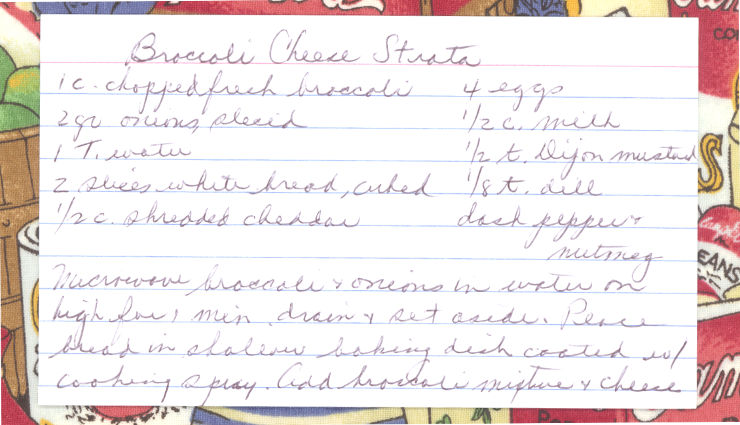 Broccoli Cheese Strata
1 c. chopped fresh broccoli
2 gr onions, sliced
1 T. water
2 slices white bread, cubed
1/2 c. shredded cheddar
4 eggs
1/2 c. milk
1/2 t. Dijon mustard
1/8 t. dill
dash pepper &
nutmeg
Microwave broccoli & onions in water on
high for 1 min. drain & set aside. Place
bread in shallow baking dish coated w/
cooking spray. Add broccoli mixture & cheese
EANS